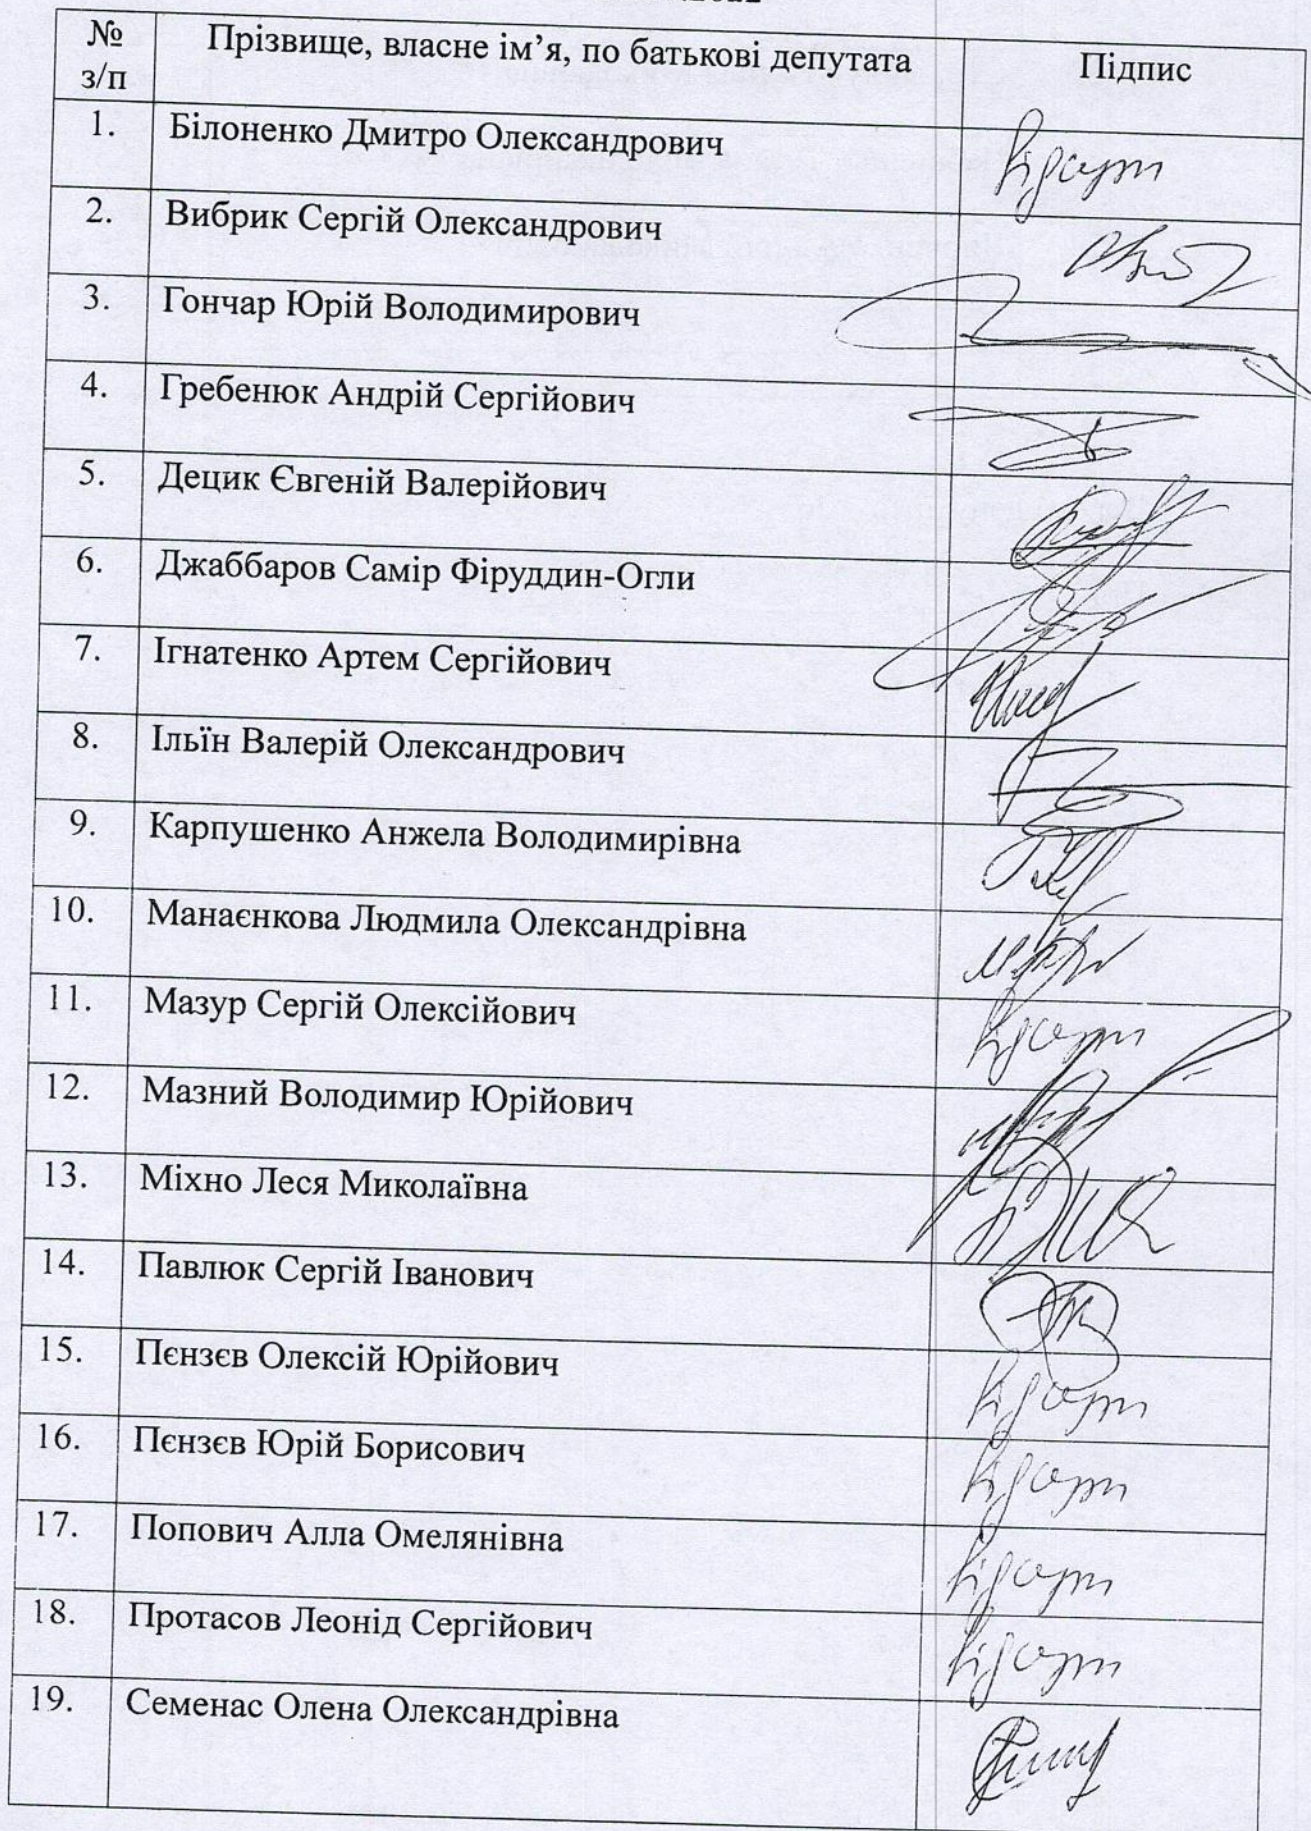 № з/п Прізвище, власне ім’я, по батькові депутата Підпис
1. Білоненко Дмитро Олександрович відсутн
2. Вибрик Сергій Олександрович
3. Гончар Юрій Володимирович
4. Гребенюк Андрій Сергійович
5. Децик Євгеній Валерійович
6. Джаббаров Самір Фіруддин-Огли
7. Ігнатенко Артем Сергійович
8. Ільїн Валерій Олександрович
9. Карпушенко Анжела Володимирівна
10. Манаєнкова Людмила Олександрівна
11. Мазур Сергій Олексійович відсутн
12. Мазний Володимир Юрійович
13. Міхно Леся Миколаївна
14. Павлюк Сергій Іванович
15. Пєнзєв Олексій Юрійович відсутн
16. Пєнзєв Юрій Борисович відсутн
17. Попович Алла Омелянівна відсутн
18. Протасов Леонід Сергійович відсутн
19. Семенас Олена Олександрівна